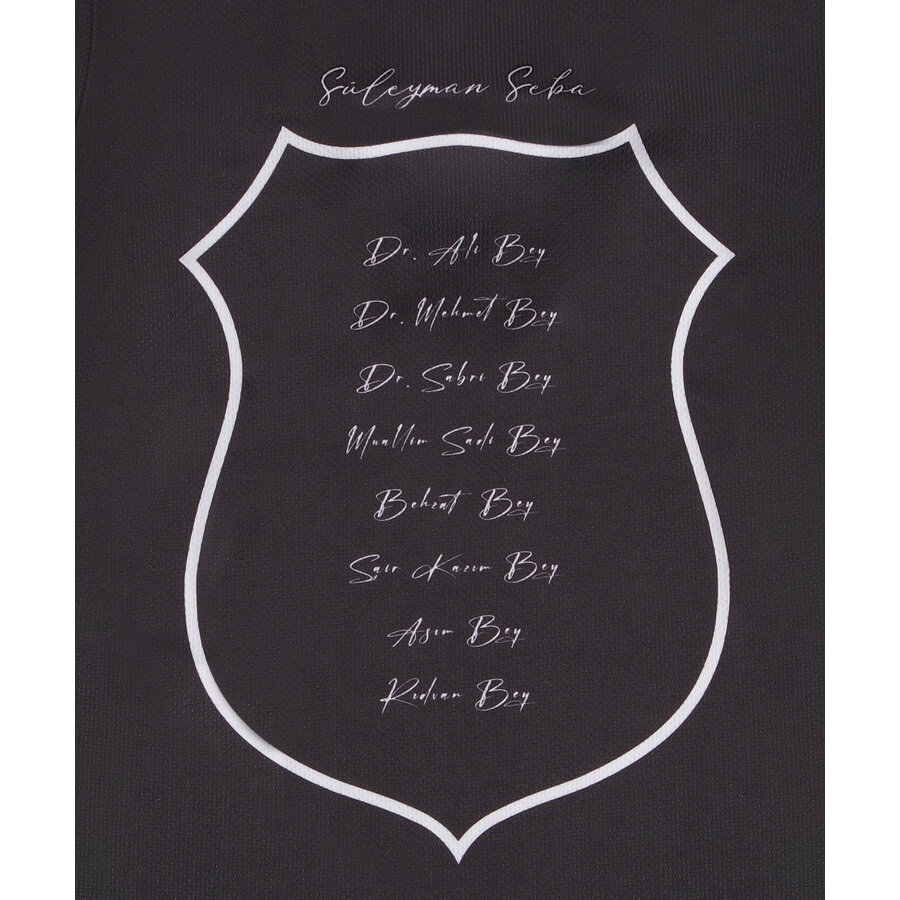 Süleyman Seba
Dr. Ali Bey
Dr. Mehmet Bey
Dr. Sabri Bey
Muallim Sadi Bey
Behzat Bey
Şair Kazım Bey
Asım Bey
Rıdvan Bey